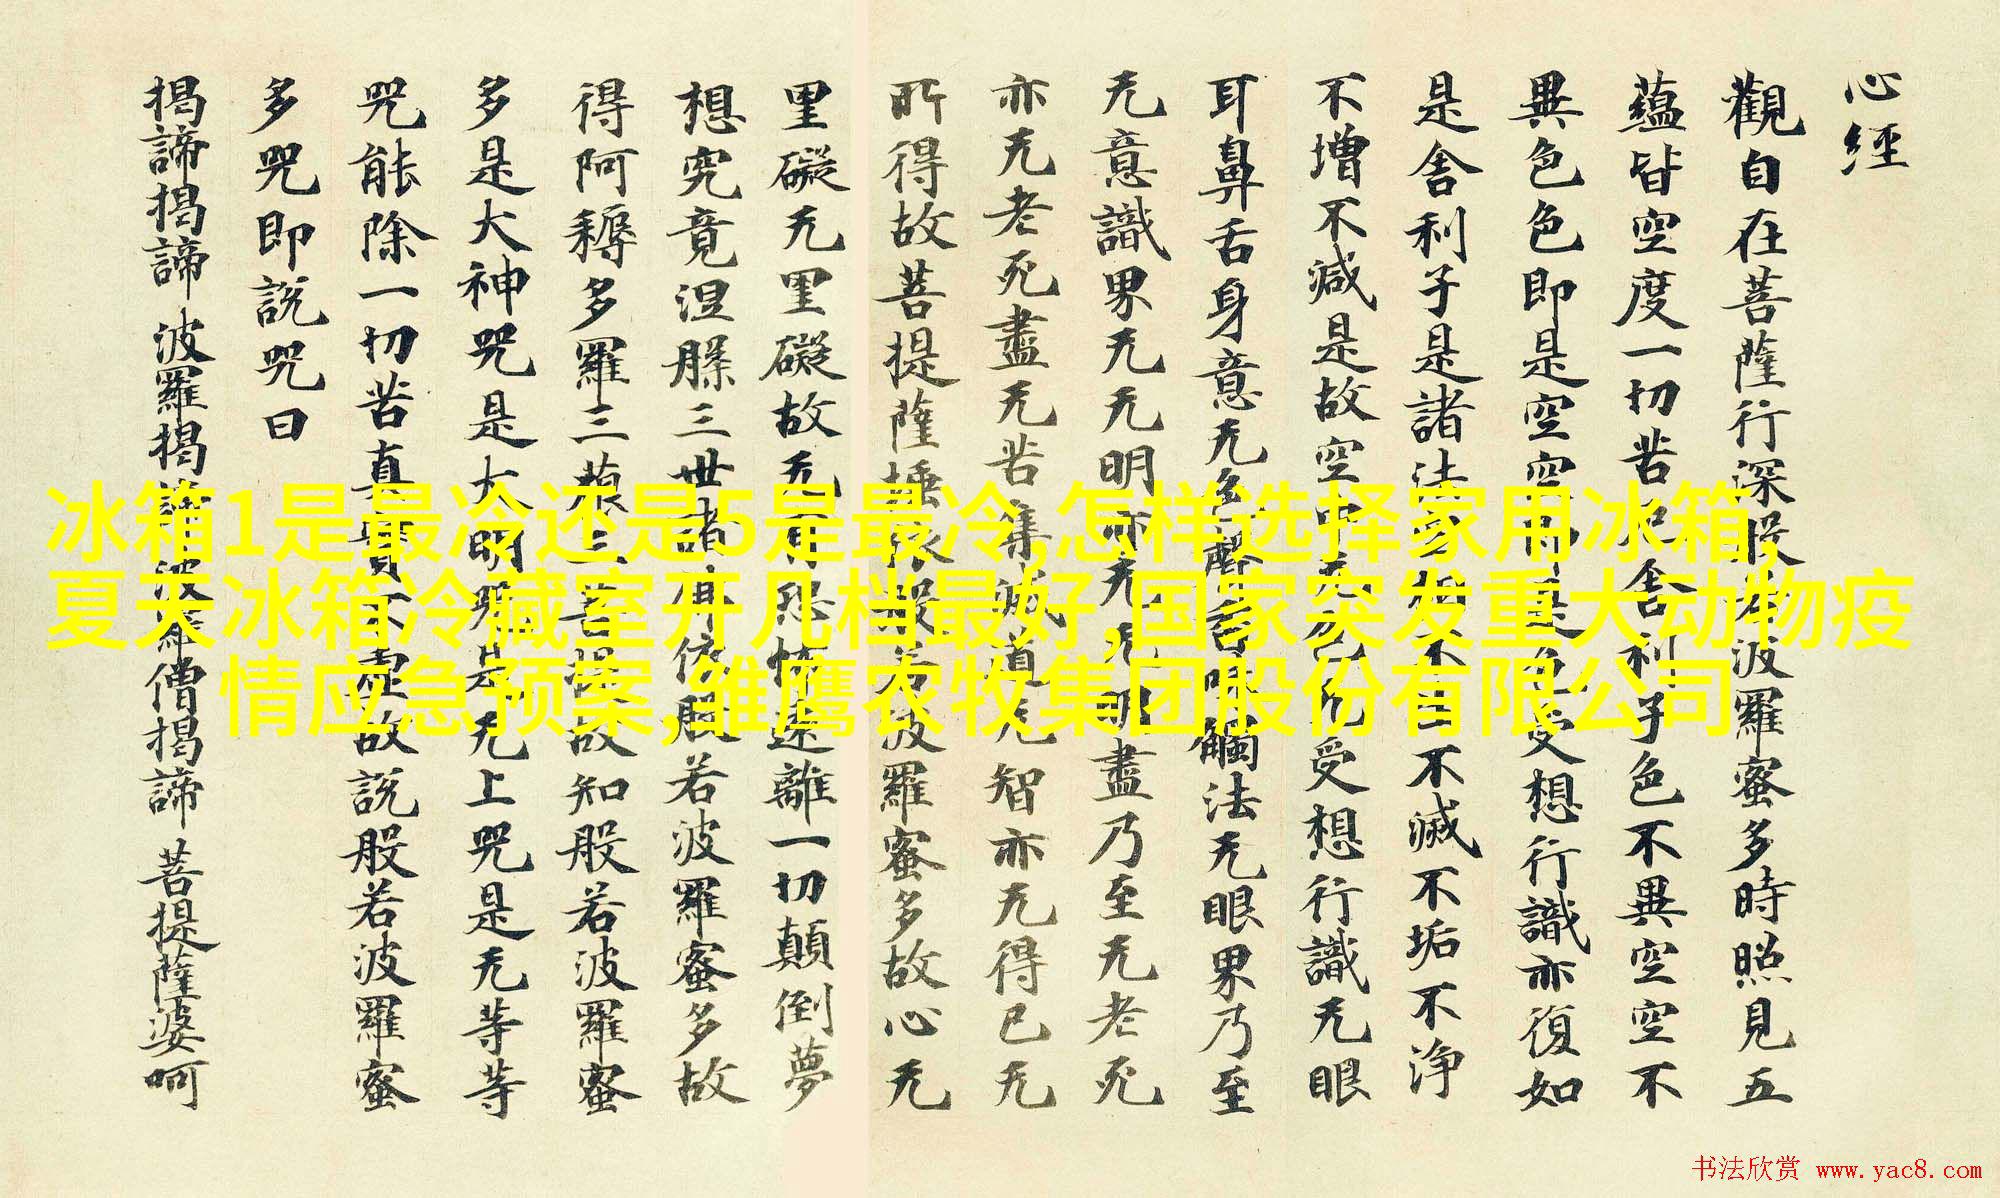 心經
觀自在菩薩行深般若波羅蜜多時照見五
蘊皆空度一切苦厄舍利子色不異空空不
異色色即是空空即是色受想行識亦復如
是舍利子是諸法空相不生不滅不垢不淨
不增不減是故空中无色无受想行識无眼
耳鼻舌身意无色聲香味觸法无眼界乃至
无意識界无无明亦无无明盡乃至无老死
亦无老死盡无苦集滅道无智亦无得已无
所得故菩提薩埵依般若波羅蜜多故心无
罣礙无罣礙故无有恐怖遠離一切顛倒夢
想究竟涅槃三世諸佛依般若波羅蜜多故
得阿耨多羅三藐三菩提故知般若波羅蜜
多是大神咒是大明咒是无上咒是无等等
咒能除一切苦真實不虛故說般若波羅蜜
多咒即說咒曰
揭諦揭諦 波羅揭諦 波羅僧揭諦 菩提薩婆呵
冰箱1是最冷还是5是最冷,怎样选择家用冰箱,
夏天冰箱冷藏室开几档最好,国家突发重大动物疫
情应急预案,雏鹰农牧集团股份有限公司
书法欣赏 www.yac8.com